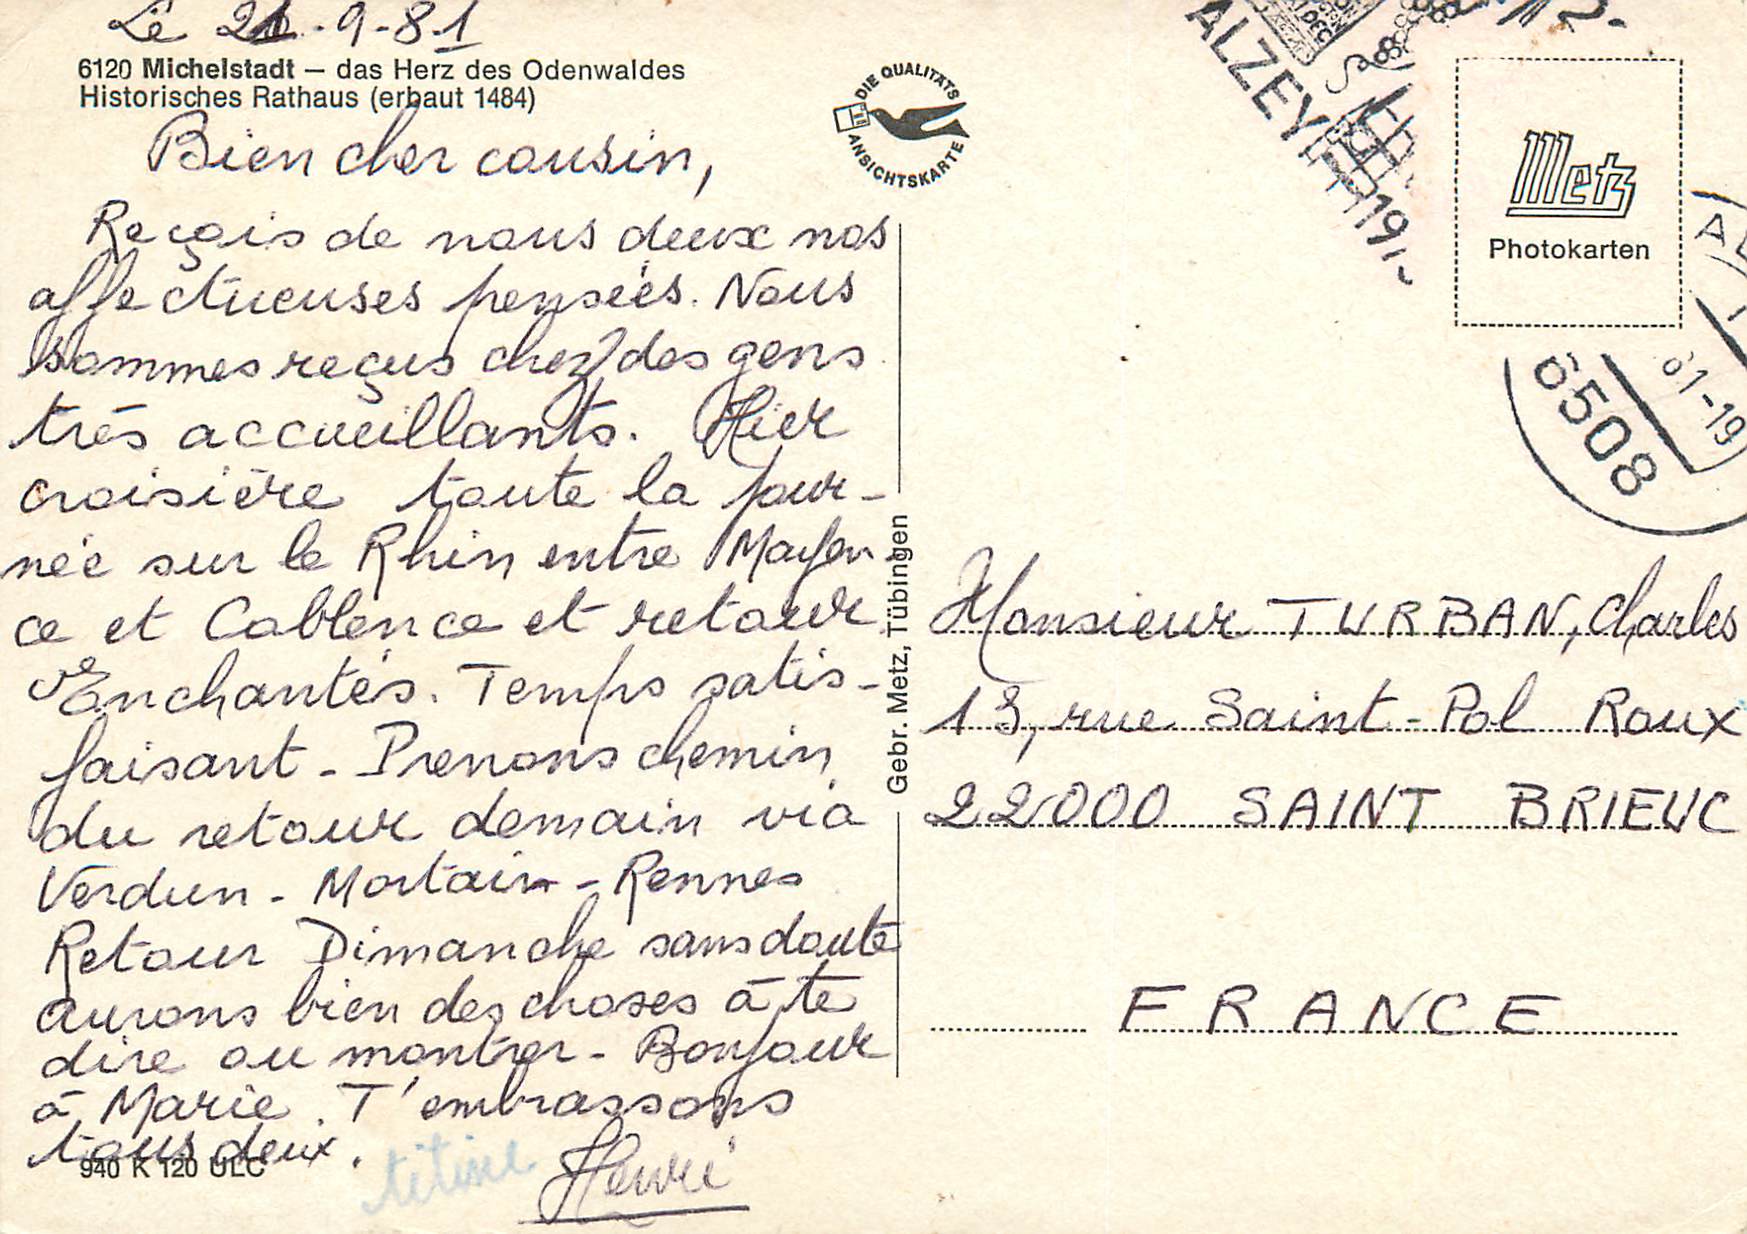 Le 21-9-81
6120 Michelstadt – das Herz des Odenwaldes
Historisches Rathaus (erbaut 1484)
Bien cher cousin,
Reçois de nous deux nos
affectueuses pensées. Nous
sommes reçus chez des gens
très accueillants. Hier
croisière toute la jour-
née sur le Rhin entre Mayen-
ce et Coblence et retour
Enchantés. Temps satis-
faisant - Prenons chemin
du retour demain via
Verdun - Mortain - Rennes
Retour Dimanche sans doute
aurons bien des choses à te
dire ou montrer - Bonjour
à Marie. T'embrassons
tous deux.
titine
Henri
940 K 120 ULC
DIE QUALITÄTS
ANSICHTSKARTE
Gebr. Metz, Tübingen
ALZEY
19
Metz
Photokarten
6508
81-19
Monsieur TURBAN, Charles
13, rue Saint-Pol Roux
22000 SAINT BRIEUC
FRANCE